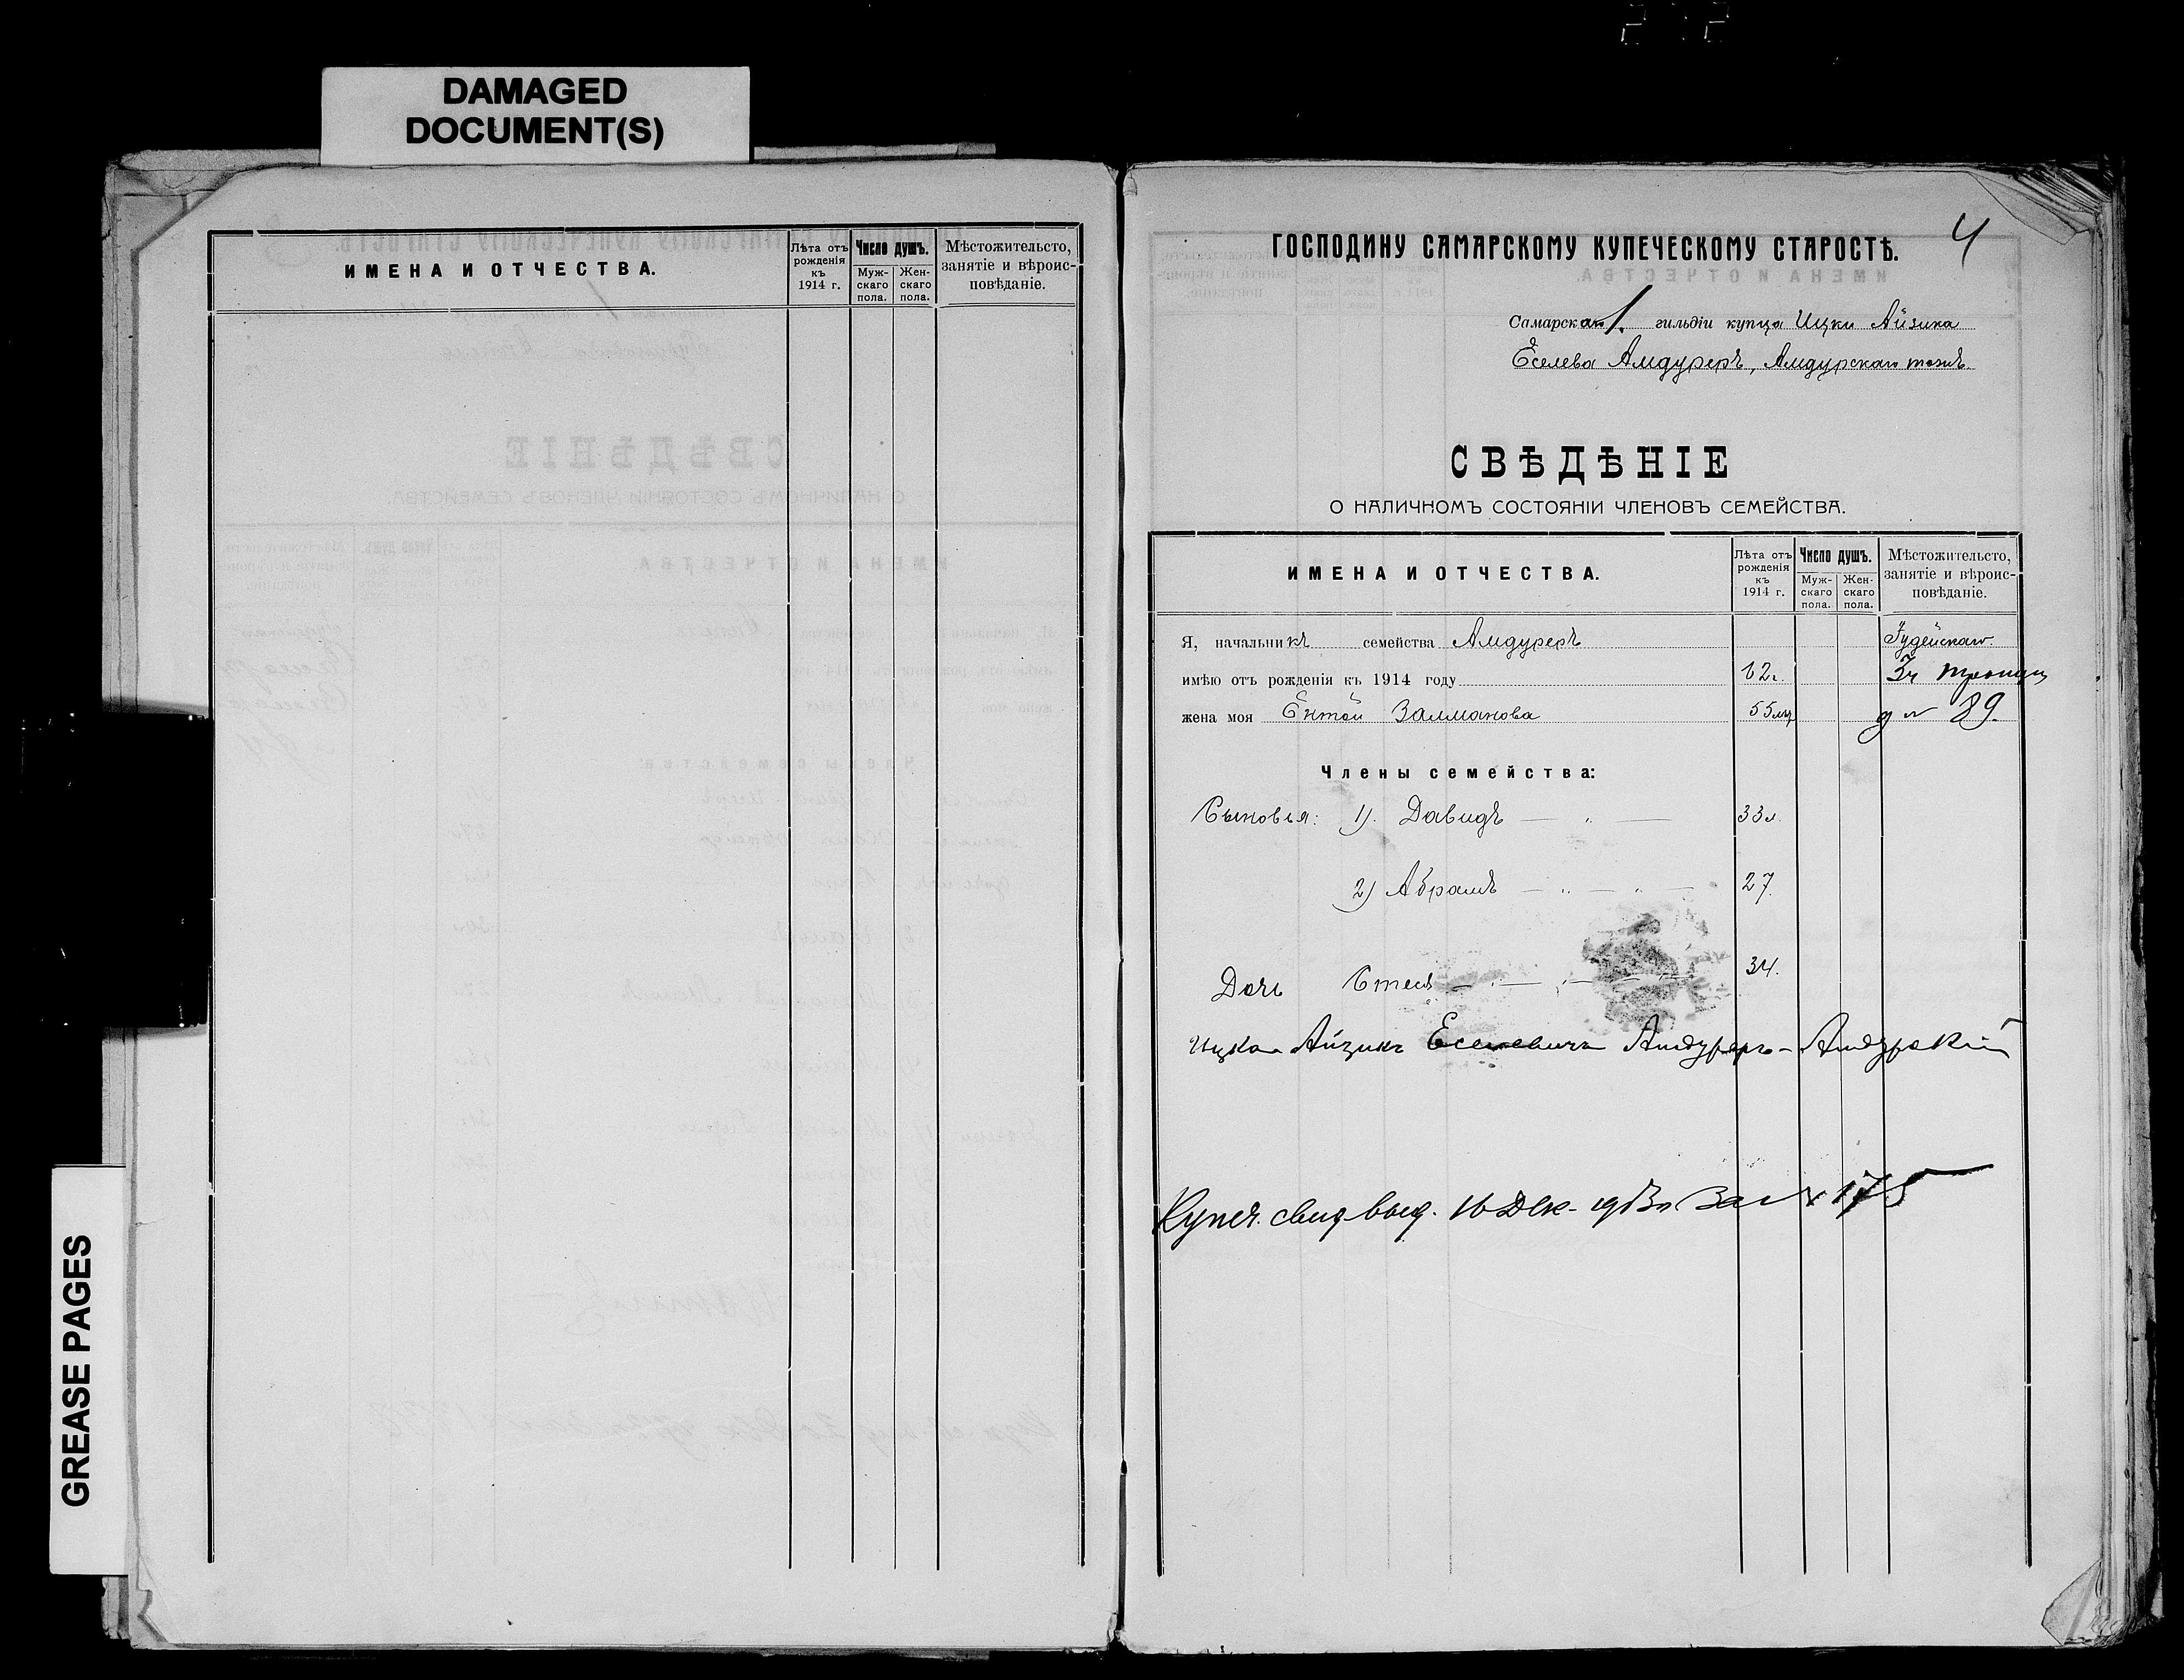 DAMAGED
DOCUMENT(S)
GREASE PAGES
ИМЕНА И ОТЧЕСТВА.
Лѣта отъ рожденія къ 1914 г.
Число душъ.
Муж-скаго пола.
Жен-скаго пола.
Мѣстожительсто, занятіе и вѣроис-повѣданіе.
4
ГОСПОДИНУ САМАРСКОМУ КУПЕЧЕСКОМУ СТАРОСТѢ.
Самарскаго 1. гильдіи купца Ицки Айзика
Еселева Амдуреръ, Амдурскаго тожъ.
СВѢДѢНІЕ
О НАЛИЧНОМЪ СОСТОЯНІИ ЧЛЕНОВЪ СЕМЕЙСТВА.
ИМЕНА И ОТЧЕСТВА.
Лѣта отъ рожденія къ 1914 г.
Число душъ.
Муж-скаго пола.
Жен-скаго пола.
Мѣстожительсто, занятіе и вѣроис-повѣданіе.
Я, начальникъ семейства Амдуреръ Іудейскаго.
имѣю отъ рожденія къ 1914 году 62
жена моя Залманова 55 д № 89.
Члены семейства:
Сыновья: 1). Давидъ — „ — 33л.
2) Абрамъ — „ — „ — 27.
Дочь 34.
Ицка Айзикъ Еселевичъ Амдуреръ-Амдурскій
Купеч. свид. выд. 16 Дек. 1913г За № 175